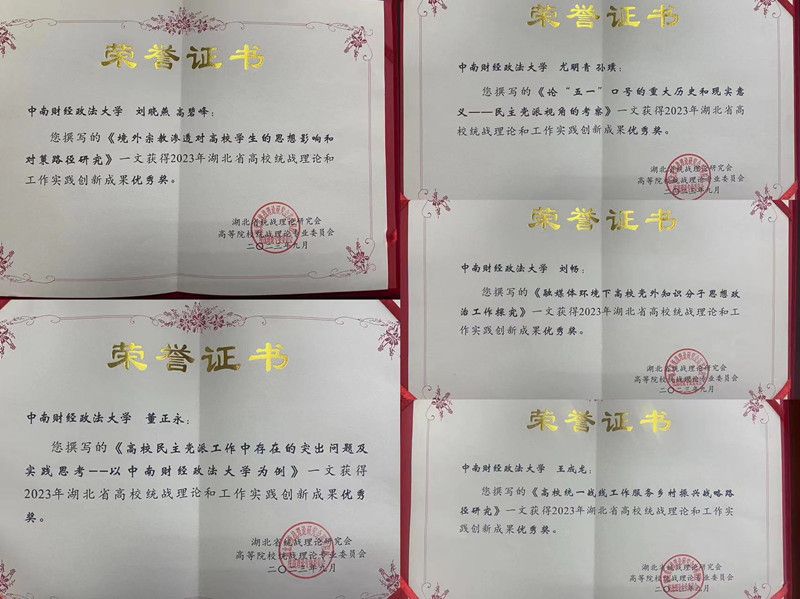 荣誉证书
中南财经政法大学 刘晓燕 高碧峰：
您撰写的《境外宗教渗透对高校学生的思想影响和
对策路径研究》一文获得2023年湖北省高校统战理论和
工作实践创新成果优秀奖。
湖北省统战理论研究会
高等院校统战理论专业委员会
二〇二三年九月
荣誉证书
中南财经政法大学 董正永：
您撰写的《高校民主党派工作中存在的突出问题及
实践思考——以中南财经政法大学为例》一文获得
2023年湖北省高校统战理论和工作实践创新成果优秀
奖。
湖北省统战理论研究会
高等院校统战理论专业委员会
二〇二三年九月
荣誉证书
中南财经政法大学 尤明青 孙璞：
您撰写的《论“五一”口号的重大历史和现实意
义——民主党派视角的考察》一文获得2023年湖北省高
校统战理论和工作实践创新成果优秀奖。
湖北省统战理论研究会
高等院校统战理论专业委员会
二〇二三年九月
荣誉证书
中南财经政法大学 刘畅：
您撰写的《融媒体环境下高校党外知识分子思想政
治工作探究》一文获得2023年湖北省高校统战理论和工
作实践创新成果优秀奖。
湖北省统战理论研究会
高等院校统战理论专业委员会
二〇二三年九月
荣誉证书
中南财经政法大学 王成龙：
您撰写的《高校统一战线工作服务乡村振兴战略路
径研究》一文获得2023年湖北省高校统战理论和工作实
践创新成果优秀奖。
湖北省统战理论研究会
高等院校统战理论专业委员会
二〇二三年九月